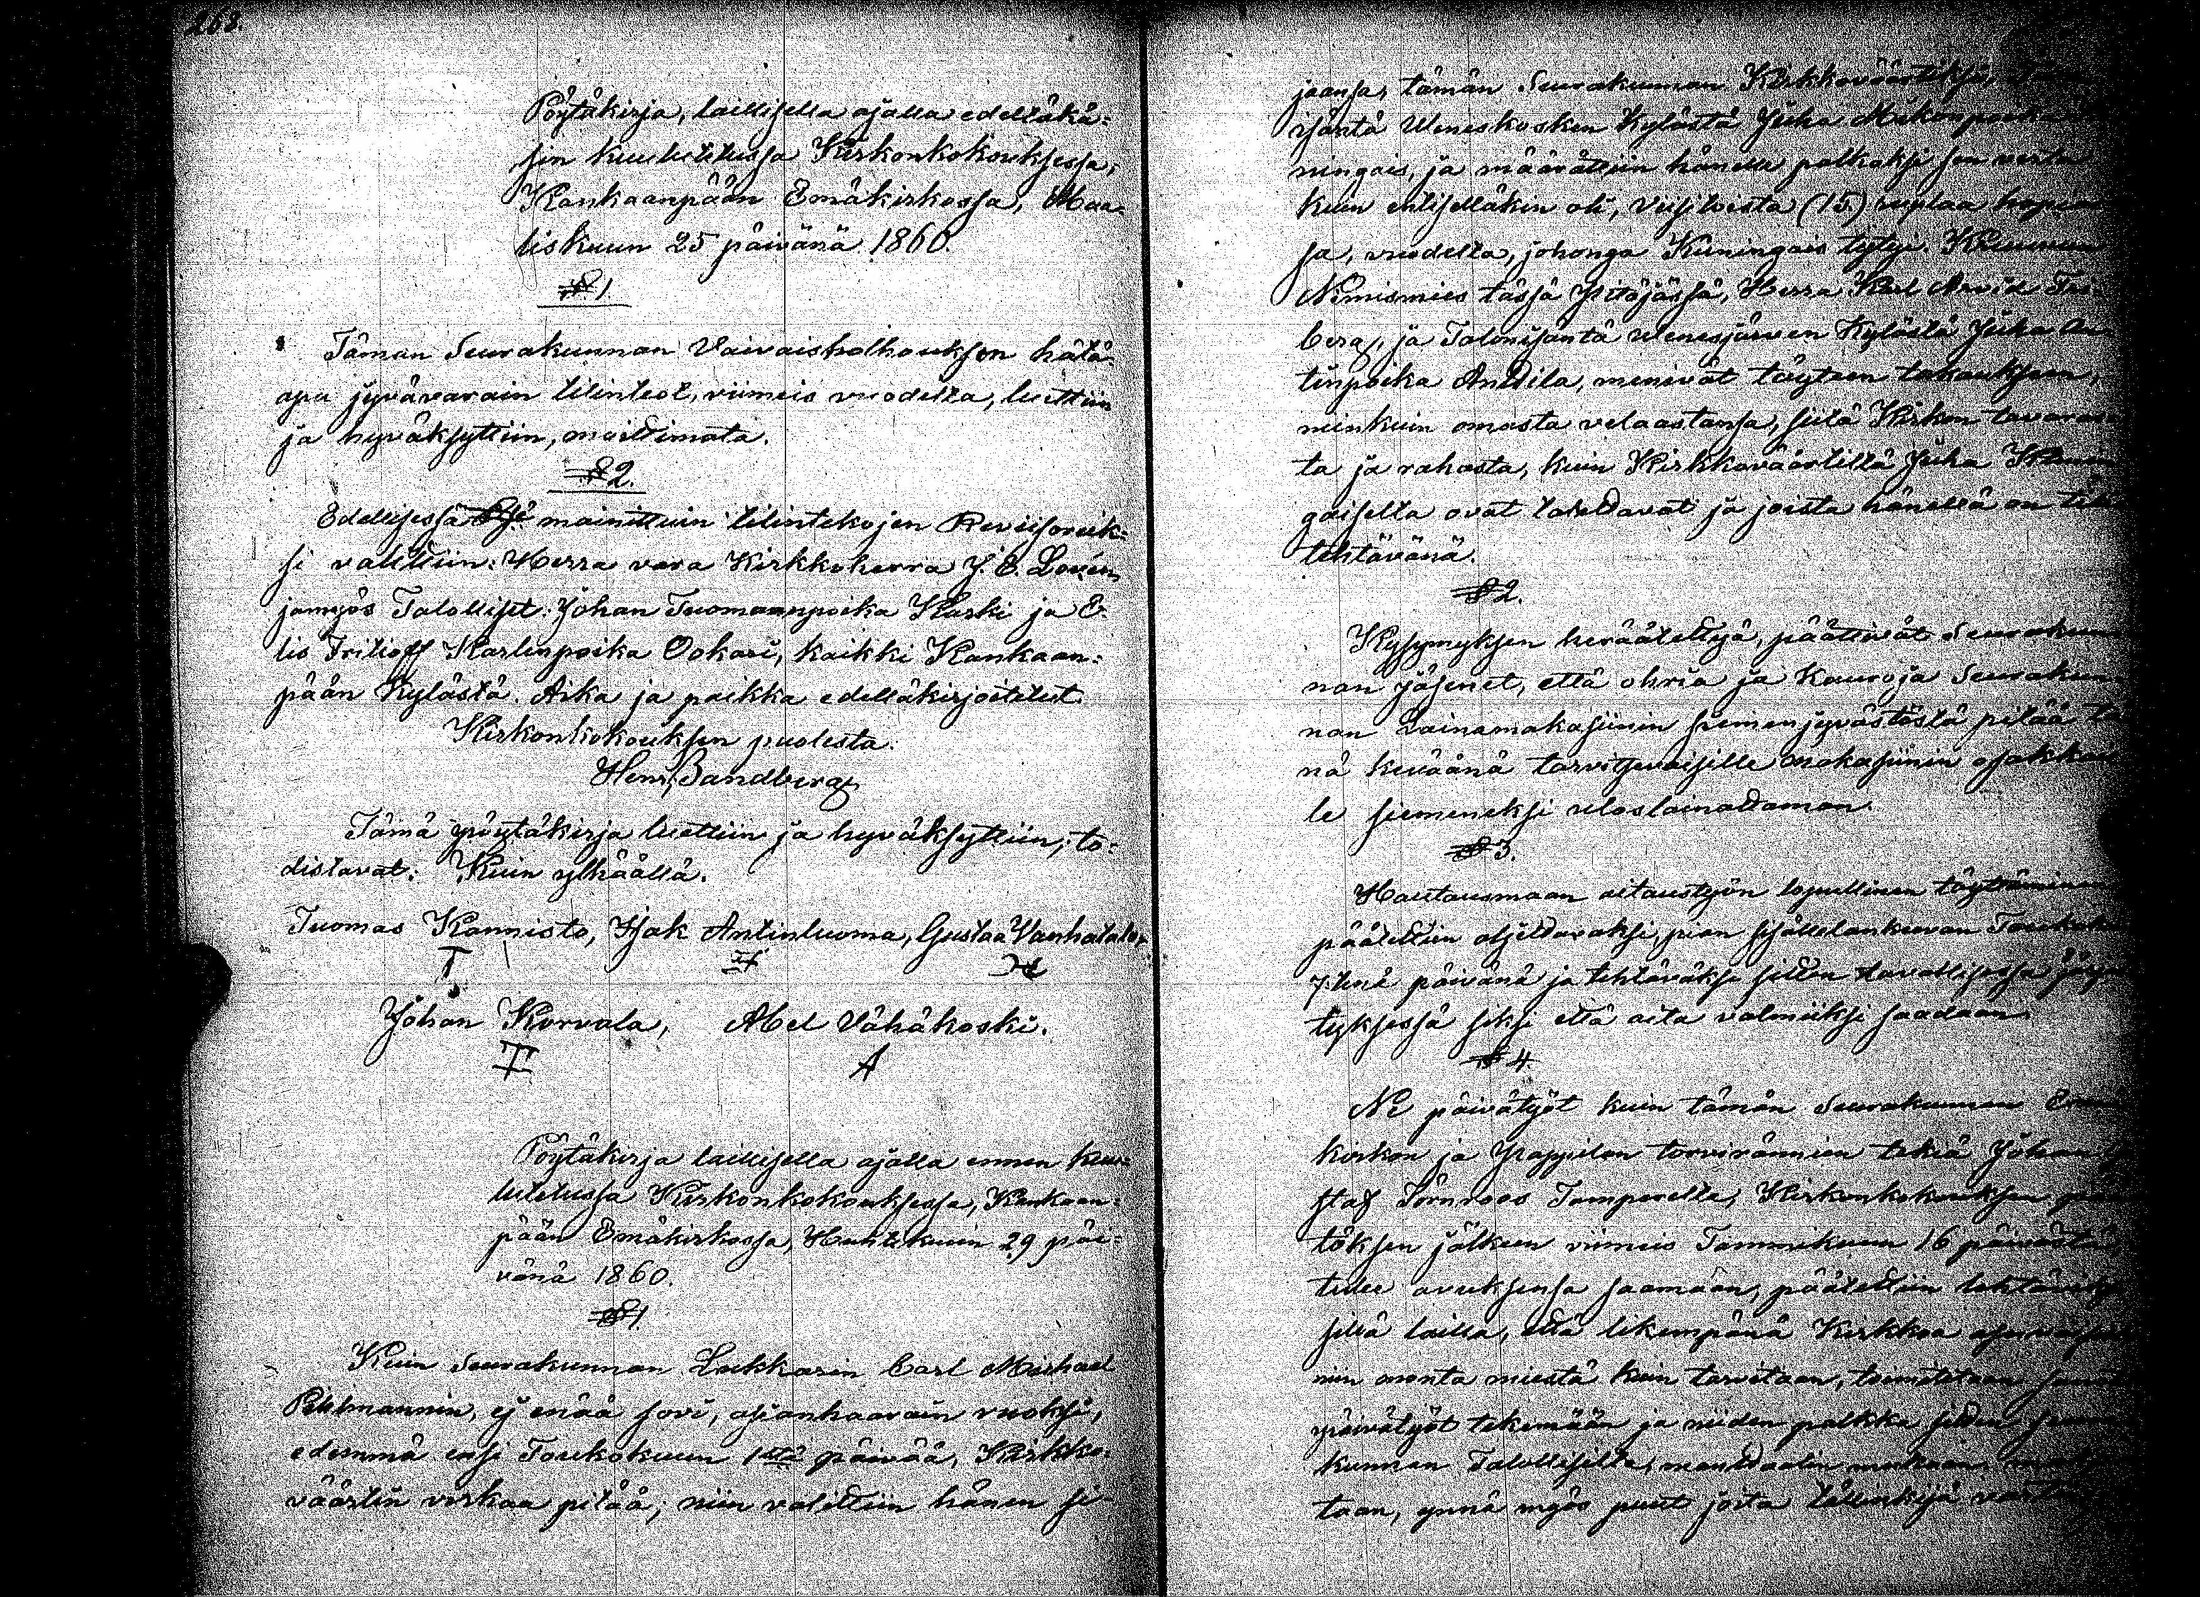 268.
Pöytäkirja, laillisella ajalla edelläkä-
sin kuulutetussa Kirkonkokouksessa,
Kankaanpään Emäkirkossa, Maa-
liskuun 25 päivänä 1860.
§ 1.
Tämän Seurakunnan Vaivaisholhouksen hätä-
apu jyvävarain tilinteot, viimeis vuodelta, luettiin
ja hyväksyttiin, moittimata.
§ 2.
Edellisessä §sä mainittuin tilintekojen Reviisoreik-
si valittiin: Herra vara Kirkkoherra J. E. Lovén,
jamyös Talolliset: Johan Tuomaanpoika Karski ja E-
lis Fritioff Karlinpoika Ookari, kaikki Kankaan-
pään Kylästä. Aika ja paikka edelläkirjoitetut.
Kirkonkokouksen puolesta:
Henr. Sandberg
Tämä pöytäkirja luettiin ja hyväksyttiin, to-
distavat: Kuin ylhäällä.
Tuomas Kannisto, Isak Antinluoma, Gustaa Vanhatalo,
Johan Korvala, Abel Vähäkoski.
A
Pöytäkirja laillisella ajalla ennen kuu-
lutetussa Kirkonkokouksessa, Kankaan-
pään Emäkirkossa, Huhtikuun 29 päi-
vänä 1860.
§ 1.
Kuin Seurakunnan Lukkarin Carl Michael
Pehlmannin, ej enää sovi, asianhaarain vuoksi,
edemmä ensi Toukokuun 1stä päivää, Kirkko-
väärtin virkaa pitää; niin valittiin hänen si-
jaansa, tämän Seurakunnan Kirkkoväärtiksi,
isäntä Weneskosken Kylästä Juha Mikonpoika
ningais, ja määrättiin hänelle palkaksi sen verta
kuin entiselläkin oli, viisitoista (15.) ruplaa hopia
sa, vuodelta, johonga Kuningais tyytyi. Kruunun
Nimismies tässä Pitäjässä, Herra Karl Arvid
berg, ja Talonisäntä Wenesjärven Kylästä Juha An
tinpoika Anttila, menivät täyteen takaukseen,
niinkuin omasta velastansa, siitä Kirkon tavaras
ta ja rahasta, kuin Kirkkoväärtillä Juha Kunin
gaisella ovat taletavat ja joista hänellä on tili
tehtävänä.
§ 2.
Kysymyksen heräätettyä, päättivät Seurakun
nan jäsenet, että ohria ja kauroja Seurakun
nan Lainamakasiinin siemenjyvästöstä pitää tä
nä keväänä tarvitsevaisille makasiinin osakkail
le siemeneksi uloslainattaman.
§ 3.
Hautausmaan aitaustyön lopullinen täyttäminen
päätettiin aljettavaksi, pian sisällelankeevan Toukok
7:tenä päivänä ja tehtäväksi sitten tavallisessa järjes
tyksessä siksi että aita valmiiksi saadaan.
§ 4.
Ne päivätyöt kuin tämän Seurakunnan Emä
kirkon ja Kappilan torvirännien tekiä Johan
staf Törnroos Tamperella, Kirkonkokouksen pää
töksen jälkeen viimeis Tammikuun 16 päivästä
tulee avuksensa saamaan, päätettiin tehtäväksi
sillä lailla, että likempänä Kirkkoa asuvaista
niin monta miestä kuin tarvitaan, toimitetaan
päivätyöt tekemään ja niiden palkka sitten seura
kunnan Talollisilta, manttaalin mukaan,
taan, ynnä myös puut joita